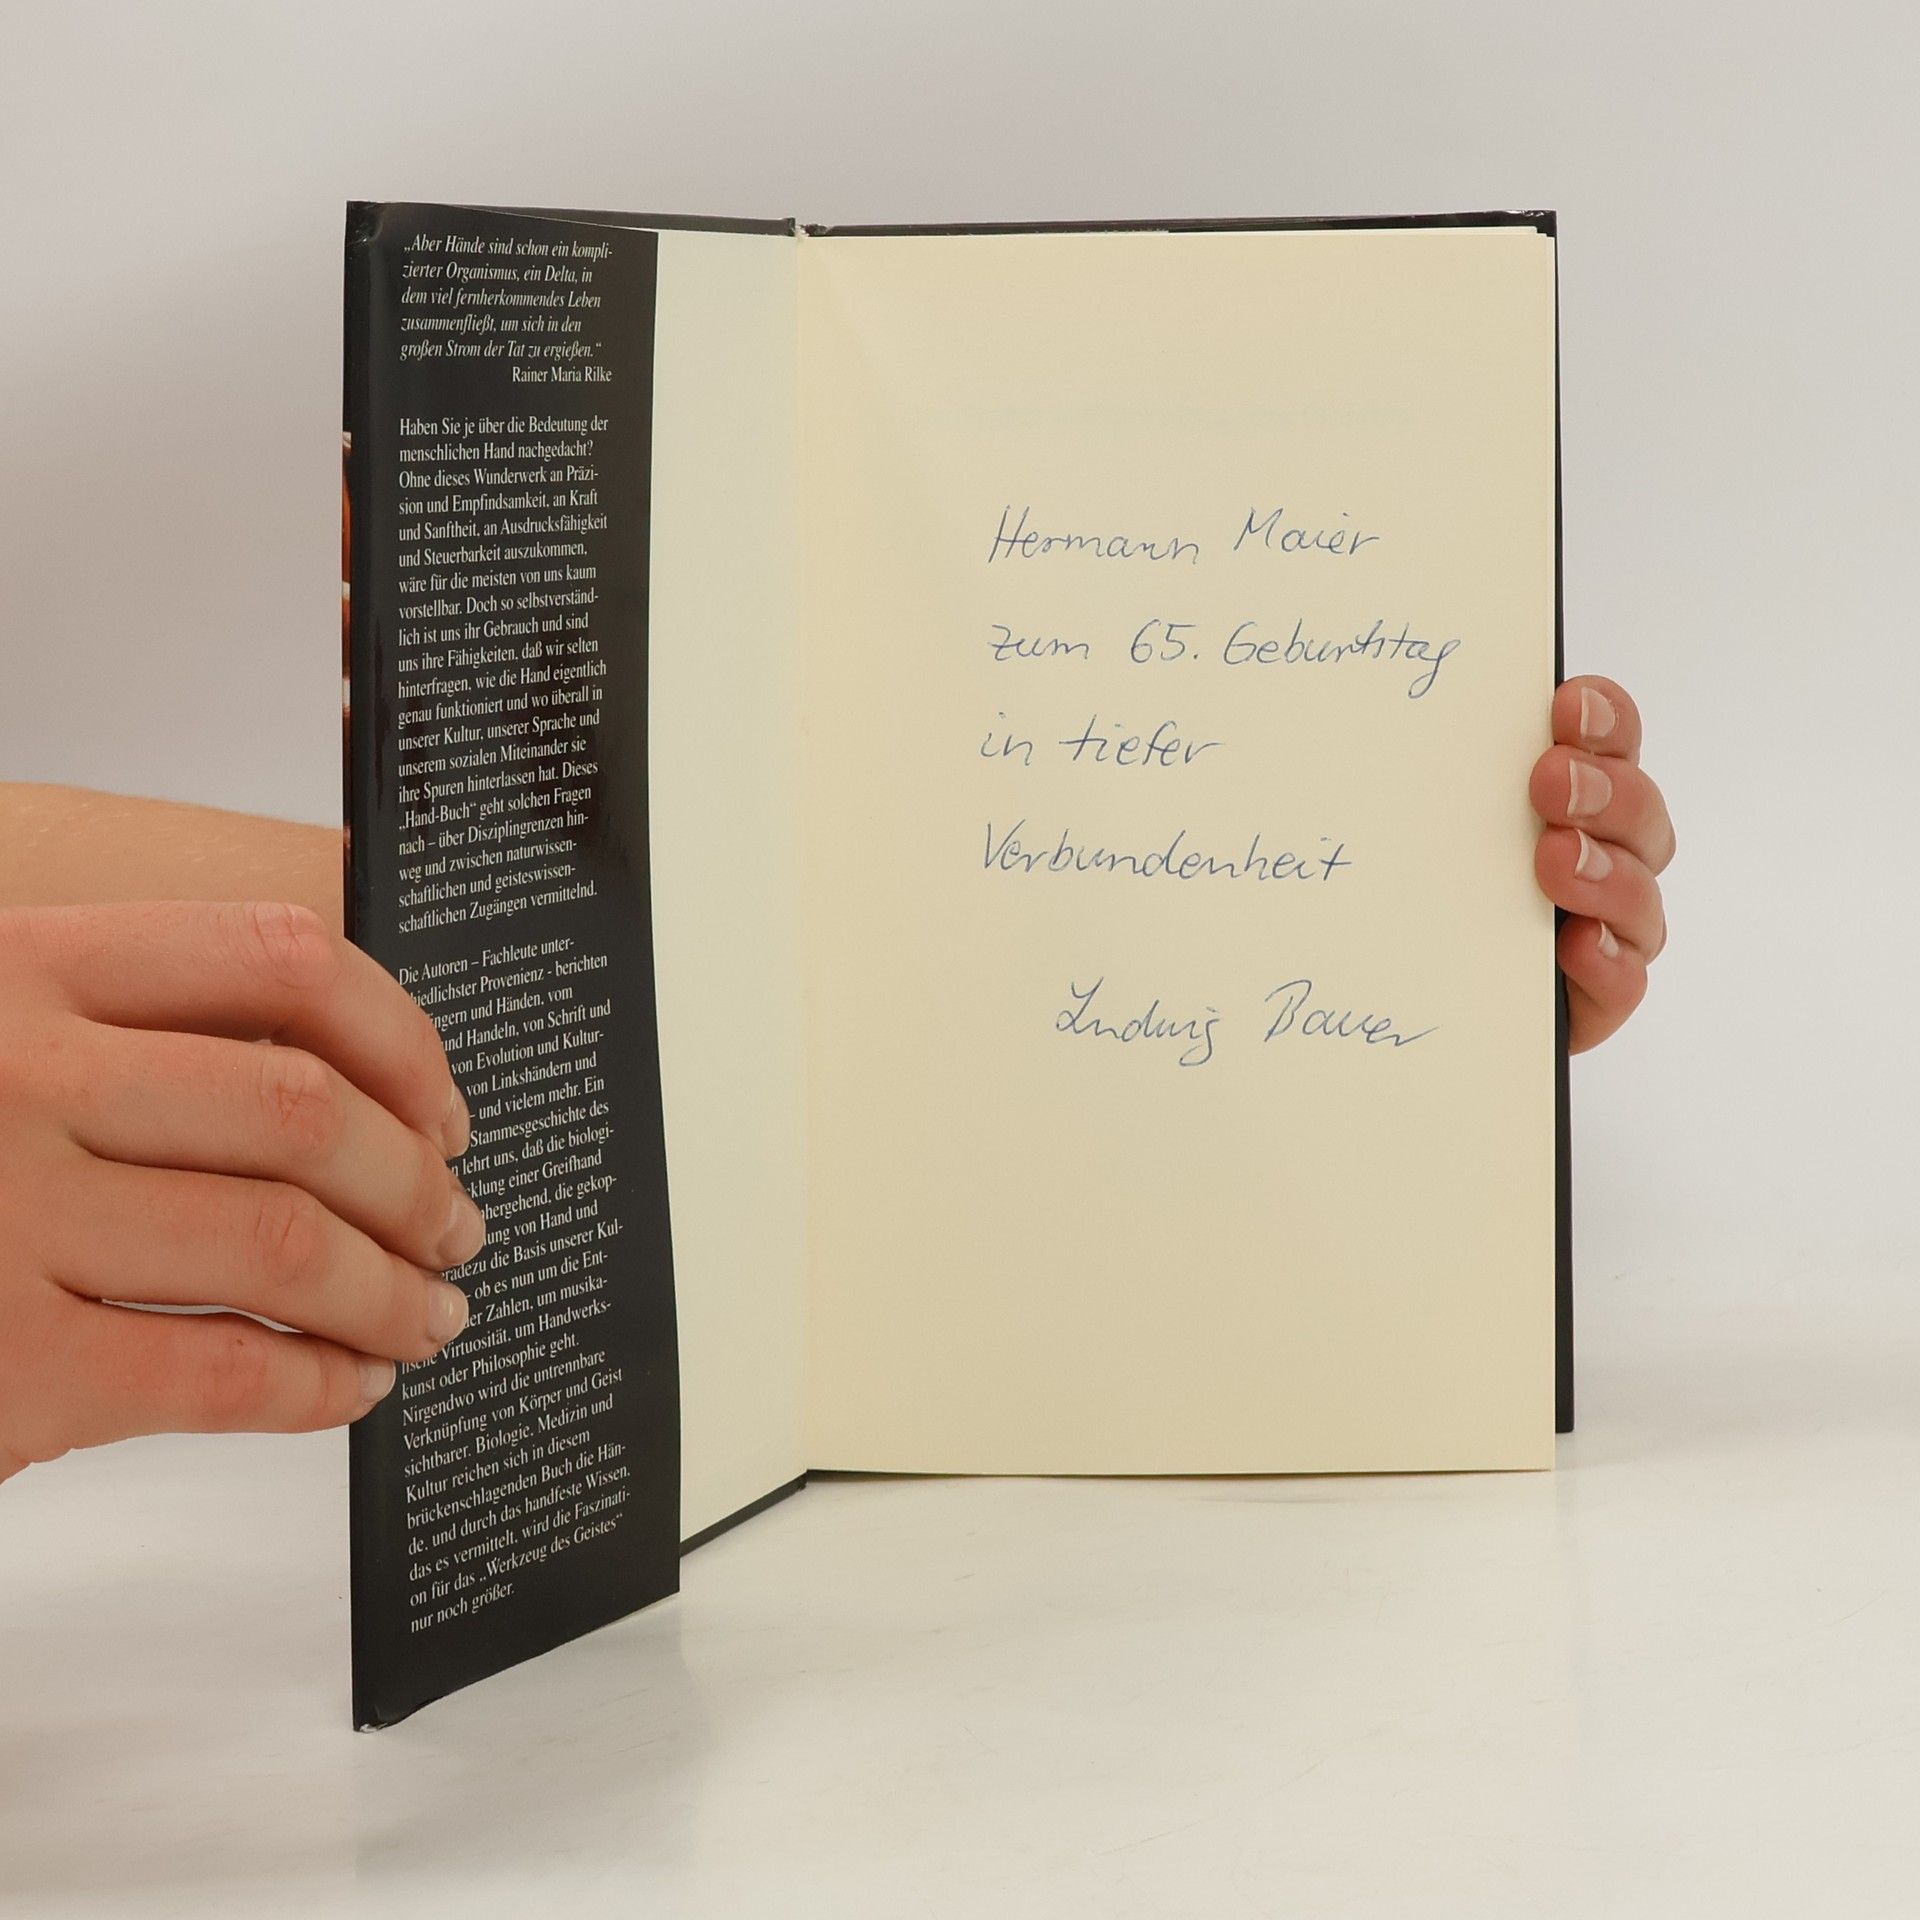 „Aber Hände sind schon ein kompli-
zierter Organismus, ein Delta, in
dem viel fernherkommendes Leben
zusammenfließt, um sich in den
großen Strom der Tat zu ergießen.“
Rainer Maria Rilke
Haben Sie je über die Bedeutung der
menschlichen Hand nachgedacht?
Ohne dieses Wunderwerk an Präzi-
sion und Empfindsamkeit, an Kraft
und Sanftheit, an Ausdrucksfähigkeit
und Steuerbarkeit auszukommen,
wäre für die meisten von uns kaum
vorstellbar. Doch so selbstverständ-
lich ist uns ihr Gebrauch und sind
uns ihre Fähigkeiten, daß wir selten
hinterfragen, wie die Hand eigentlich
genau funktioniert und wo überall in
unserer Kultur, unserer Sprache und
unserem sozialen Miteinander sie
ihre Spuren hinterlassen hat. Dieses
„Hand-Buch“ geht solchen Fragen
nach – über Disziplingrenzen hin-
weg und zwischen naturwissen-
schaftlichen und geisteswissen-
schaftlichen Zugängen vermittelnd.
Die Autoren – Fachleute unter-
hiedlichster Provenienz - berichten
ingern und Händen, vom
und Handeln, von Schrift und
von Evolution und Kultur-
von Linkshändern und
– und vielem mehr. Ein
Stammesgeschichte des
n lehrt uns, daß die biologi-
klung einer Greifhand
hergehend, die gekop-
lung von Hand und
eradezu die Basis unserer Kul-
– ob es nun um die Ent-
der Zahlen, um musika-
lische Virtuosität, um Handwerks-
kunst oder Philosophie geht.
Nirgendwo wird die untrennbare
Verknüpfung von Körper und Geist
sichtbarer. Biologie, Medizin und
Kultur reichen sich in diesem
brückenschlagenden Buch die Hän-
de, und durch das handfeste Wissen,
das es vermittelt, wird die Faszinati-
on für das „Werkzeug des Geistes“
nur noch größer.
Hermann Maier
zum 65. Geburtstag
in tiefer
Verbundenheit
Ludwig Bauer